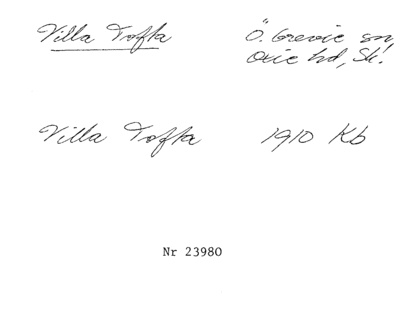 Villa Tofta Ö. Grevie sn,
Oxie hd, Sk.
Villa Tofta 1910 Kb
Nr 23980